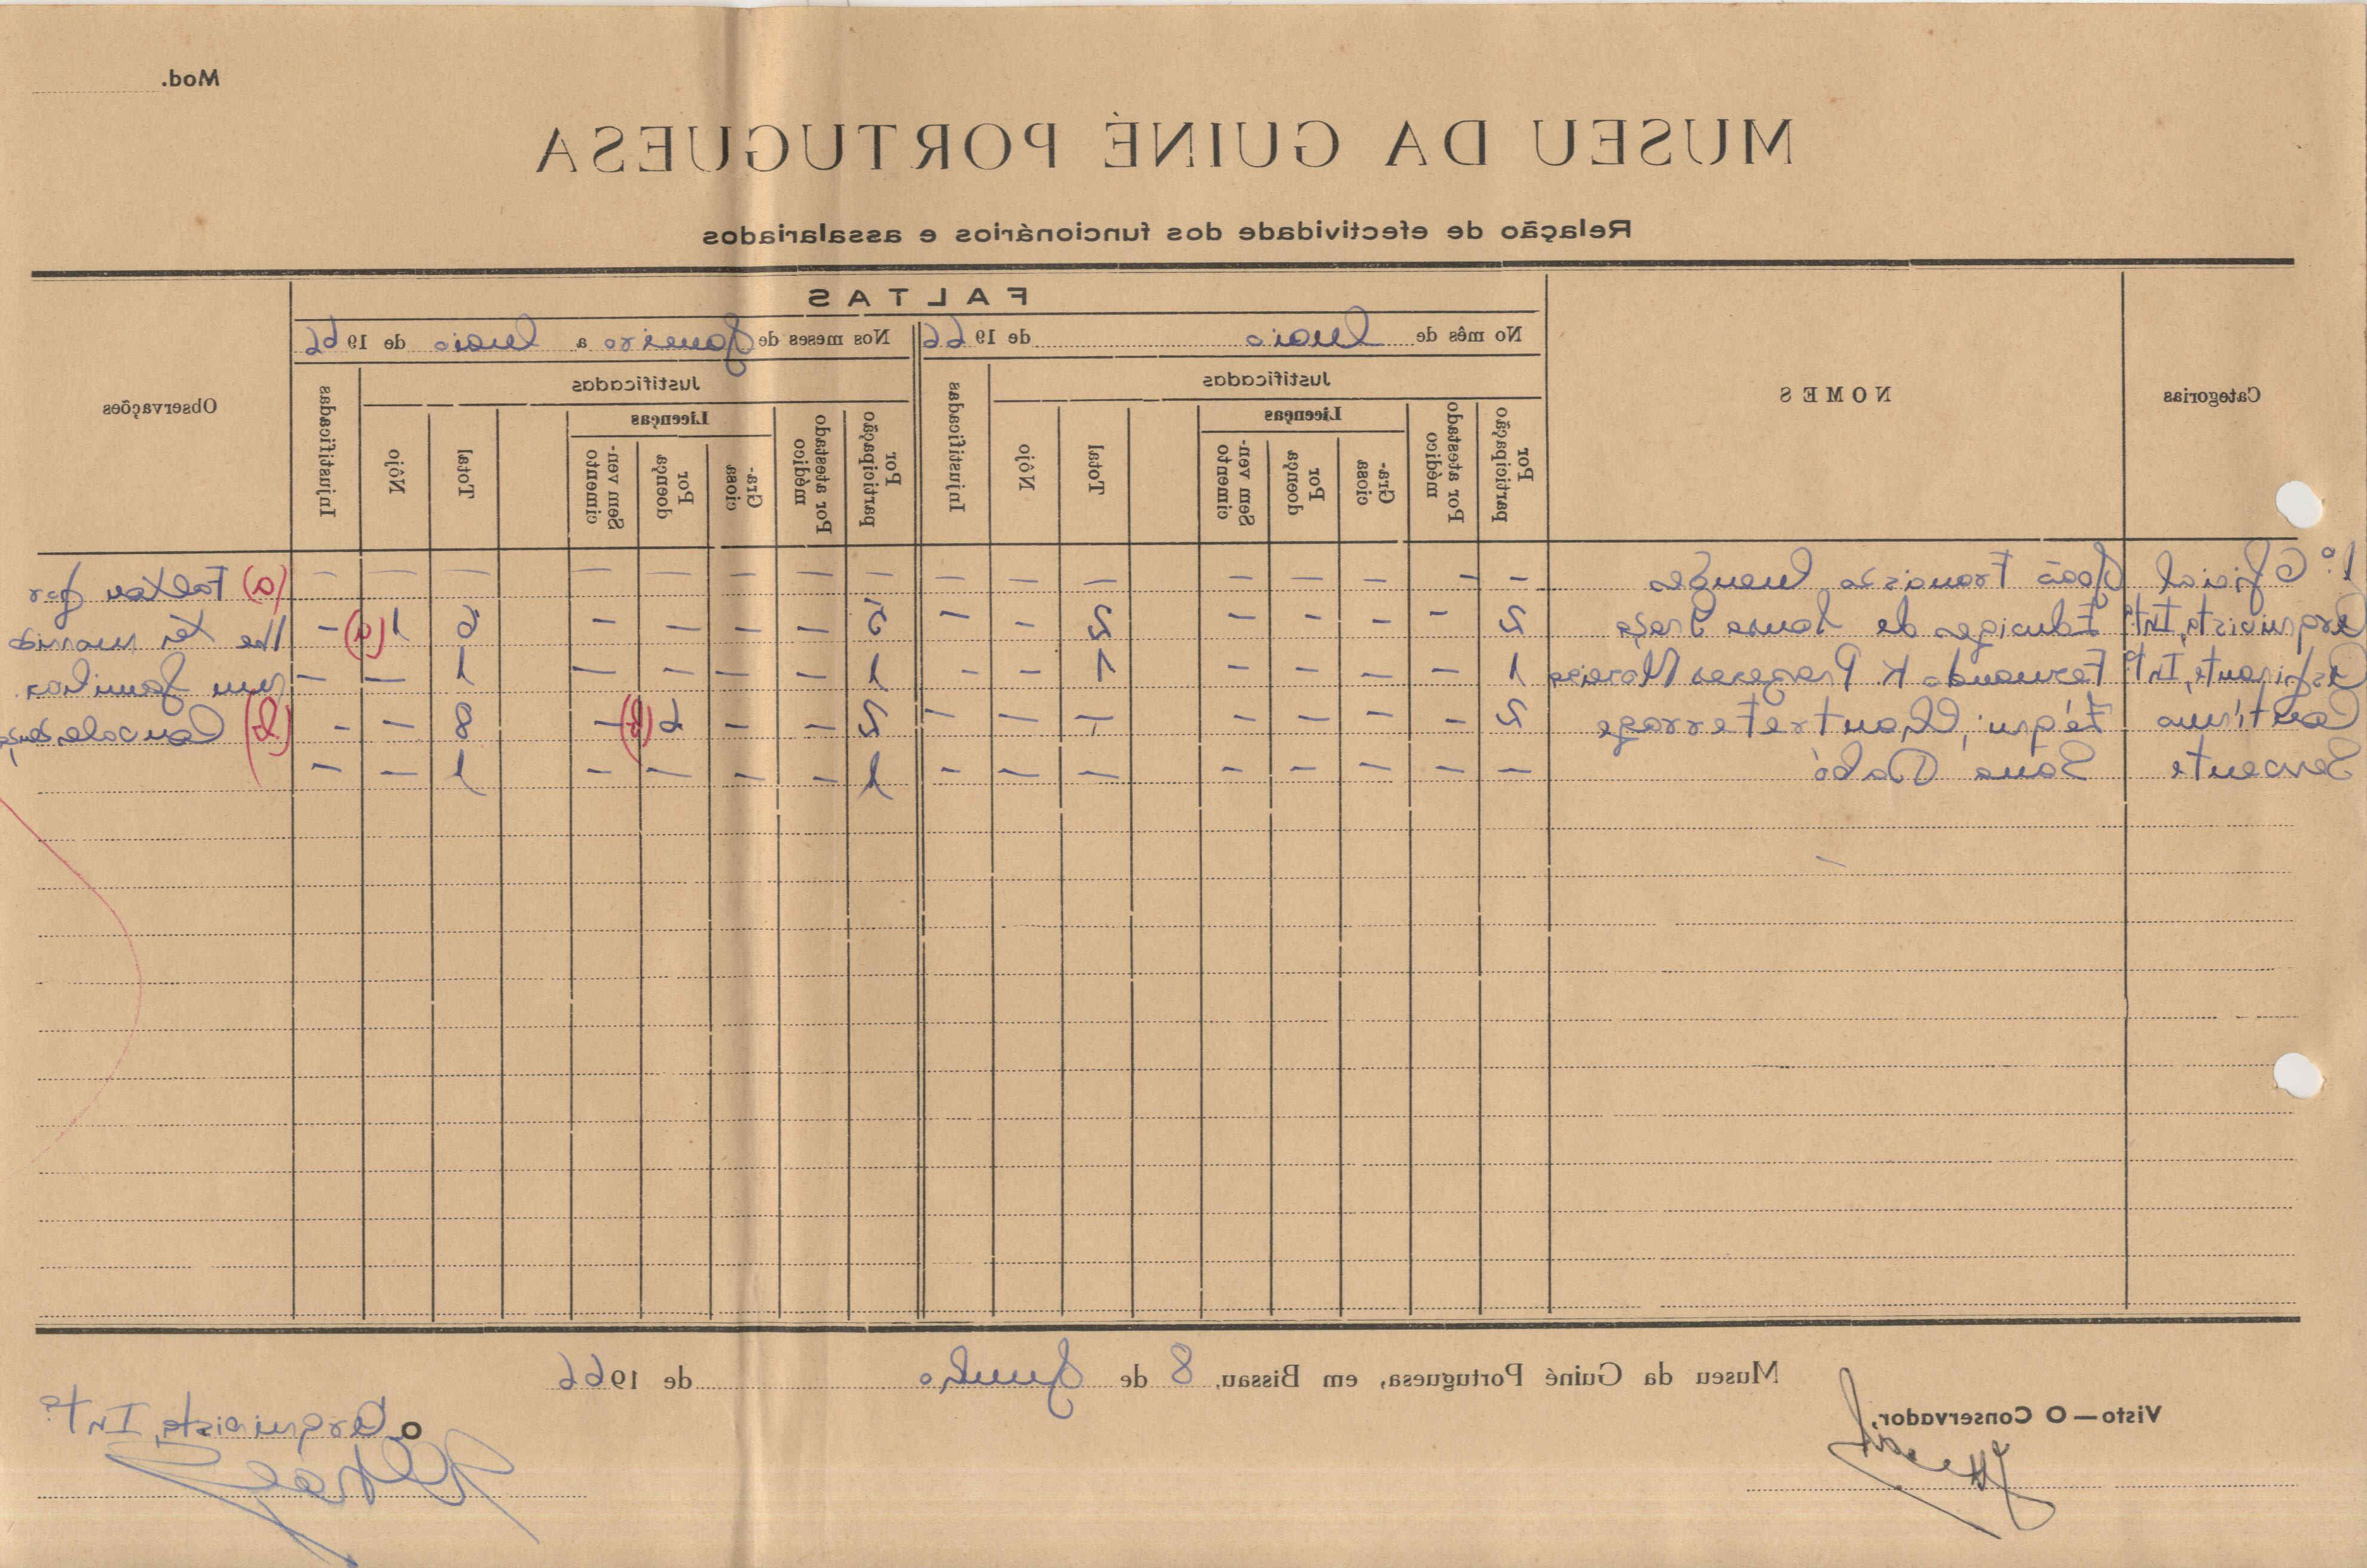 Mod.
MUSEU DA GUINÉ PORTUGUESA
Relação de efectividade dos funcionários e assalariados
Categorias
NOMES
FALTAS
No mês de Maio de 1966
Nos meses de Janeiro a Maio de 1966
Justificadas
Justificadas
Licenças
Licenças
Por participação
Por atestado médico
Gra-ciosa
Por doença
Sem ven-cimento
Total
Nôjo
Injustificadas
Por participação
Por atestado médico
Gra-ciosa
Por doença
Sem ven-cimento
Total
Nôjo
Injustificadas
Observações
1.º Oficial João Francisco Mendes - - - - - - - - - - - - - - - - (a) Faltou por
Arquivista, Intº de Sousa 2 - - - - 2 - - 5 - - - - 6 1(a) - lhe ter morrido
Aspirante, Intº Fernando K 1 - - - - 1 - - 1 - - - - 1 - - um familiar
2 - - - - - - - 2 - - 6(b) - 8 - - (b)
Servente Sana Dabó - - - - - - - - 1 - - - - 1 - -
Museu da Guiné Portuguesa, em Bissau, 8 de Junho de 1966
Visto—O Conservador,
O Arquivista, Intº